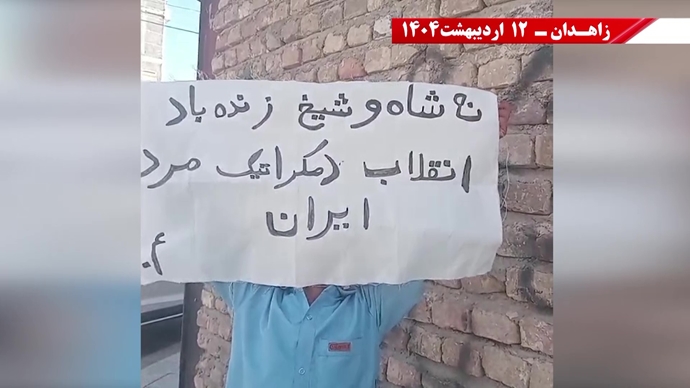 زاهـدان ــ ۱۲ اردیبهشت۱۴۰۴
نه شاه و شیخ زنده باد
انقلاب دمکراتیک مرد
ایران